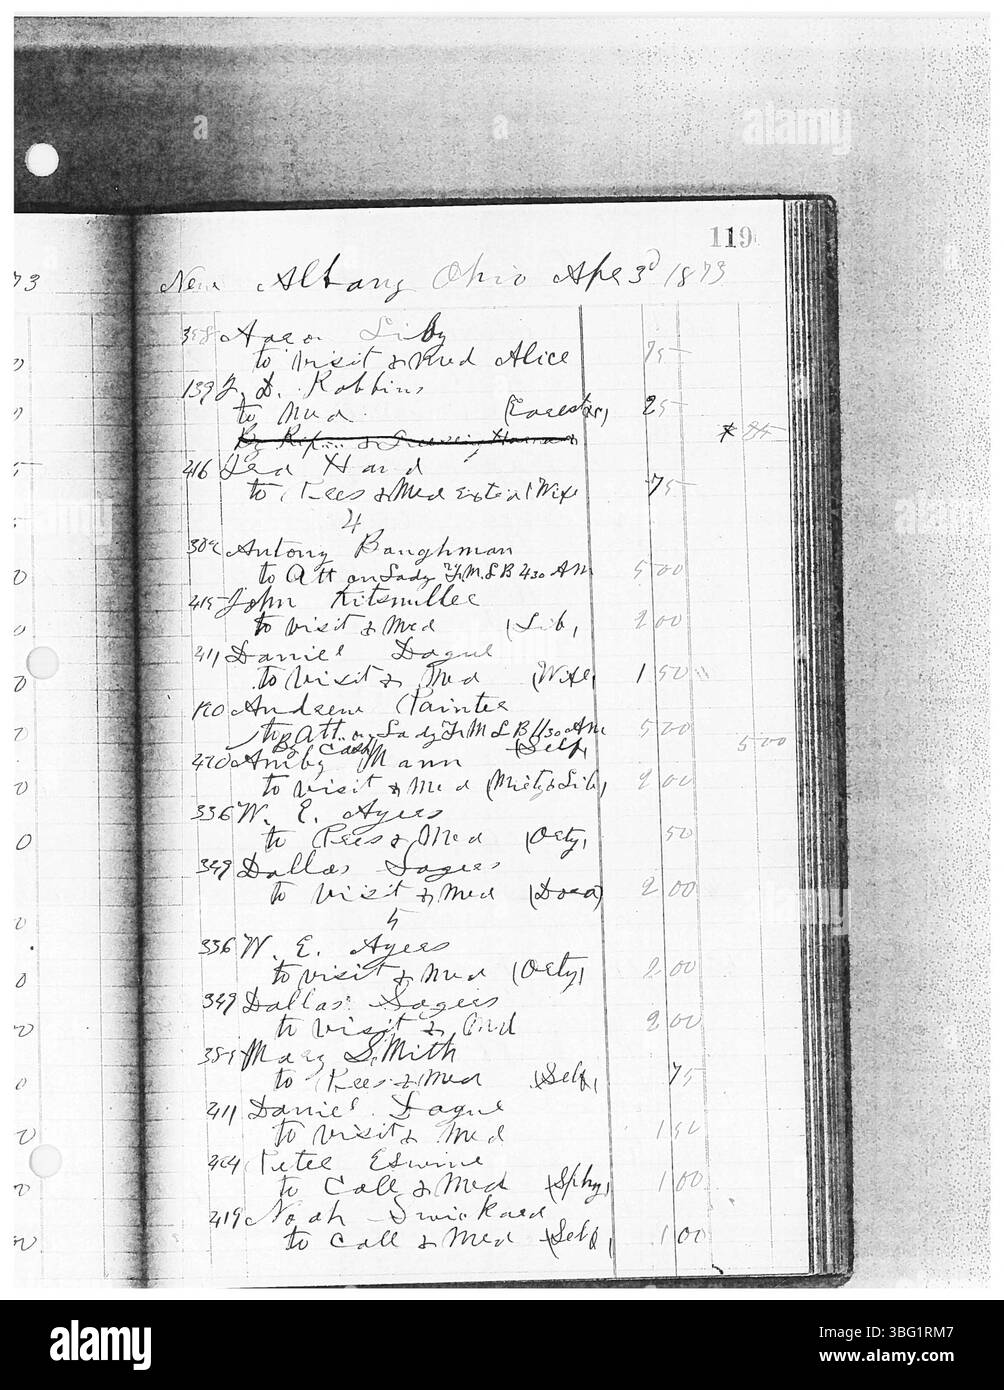 119
73
New Albany Ohio Apr 3d 1873
Aaron Liby
to visit & Med Alice 75
139 J. D. Robbins
to Med 25
216 Ira Hand
to Pres & Med External Wife 75
4
Antony Baughman
to Att on Lady F. M. L B 4 30 AM 5 00
415 John Kitsmiller
to visit & Med (Lib) 2 00
411 Daniel Dague
to Visit & Med (Wife) 1 50
Andrew Painter
to Att on Lady F M L B 11 30 AM 5 00
By Cash (Self) 5 00
420 Amby Mann
to visit & Med 2 00
336 W. E. Ayers
to Pres & Med (Orty) 50
349 Dallas Sagers
to visit & Med (Dora) 2 00
5
336 W. E. Ayers
to visit & Med (Orty) 2 00
349 Dallas Sagers
to visit & Med 2 00
Mary Smith
to Pres & Med (Self) 75
411 Daniel Dague
to visit & Med 1 50
424 Peter Eswine
to Call & Med (Sphy) 1 00
419 Noah Swickard
to Call & Med (Self) 1 00
a
alamy
alamy
Image ID: 3BG1RM7
www.alamy.com